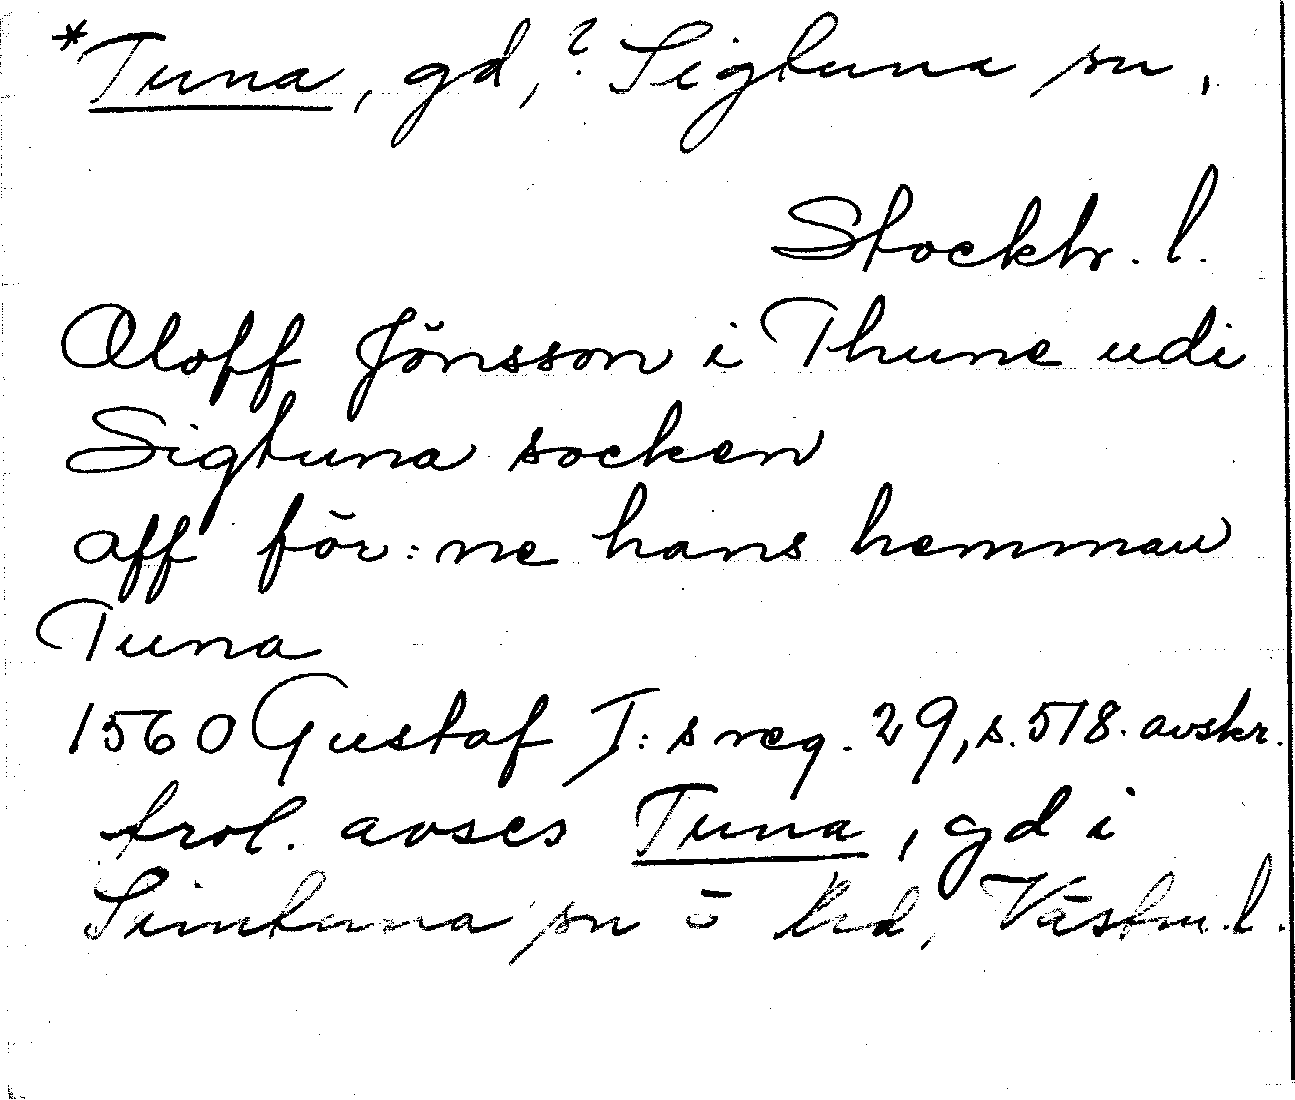 *Tuna, gd, ? Sigtuna sn,
Stockh. l.
Oloff Jönsson i Thune udi
Sigtuna socken
aff för:ne hans hemman
Tuna
1560 Gustaf I:s reg. 29, s. 518. avskr.
trol. avses Tuna, gd i
Simtuna sn o hd, Västm. l.